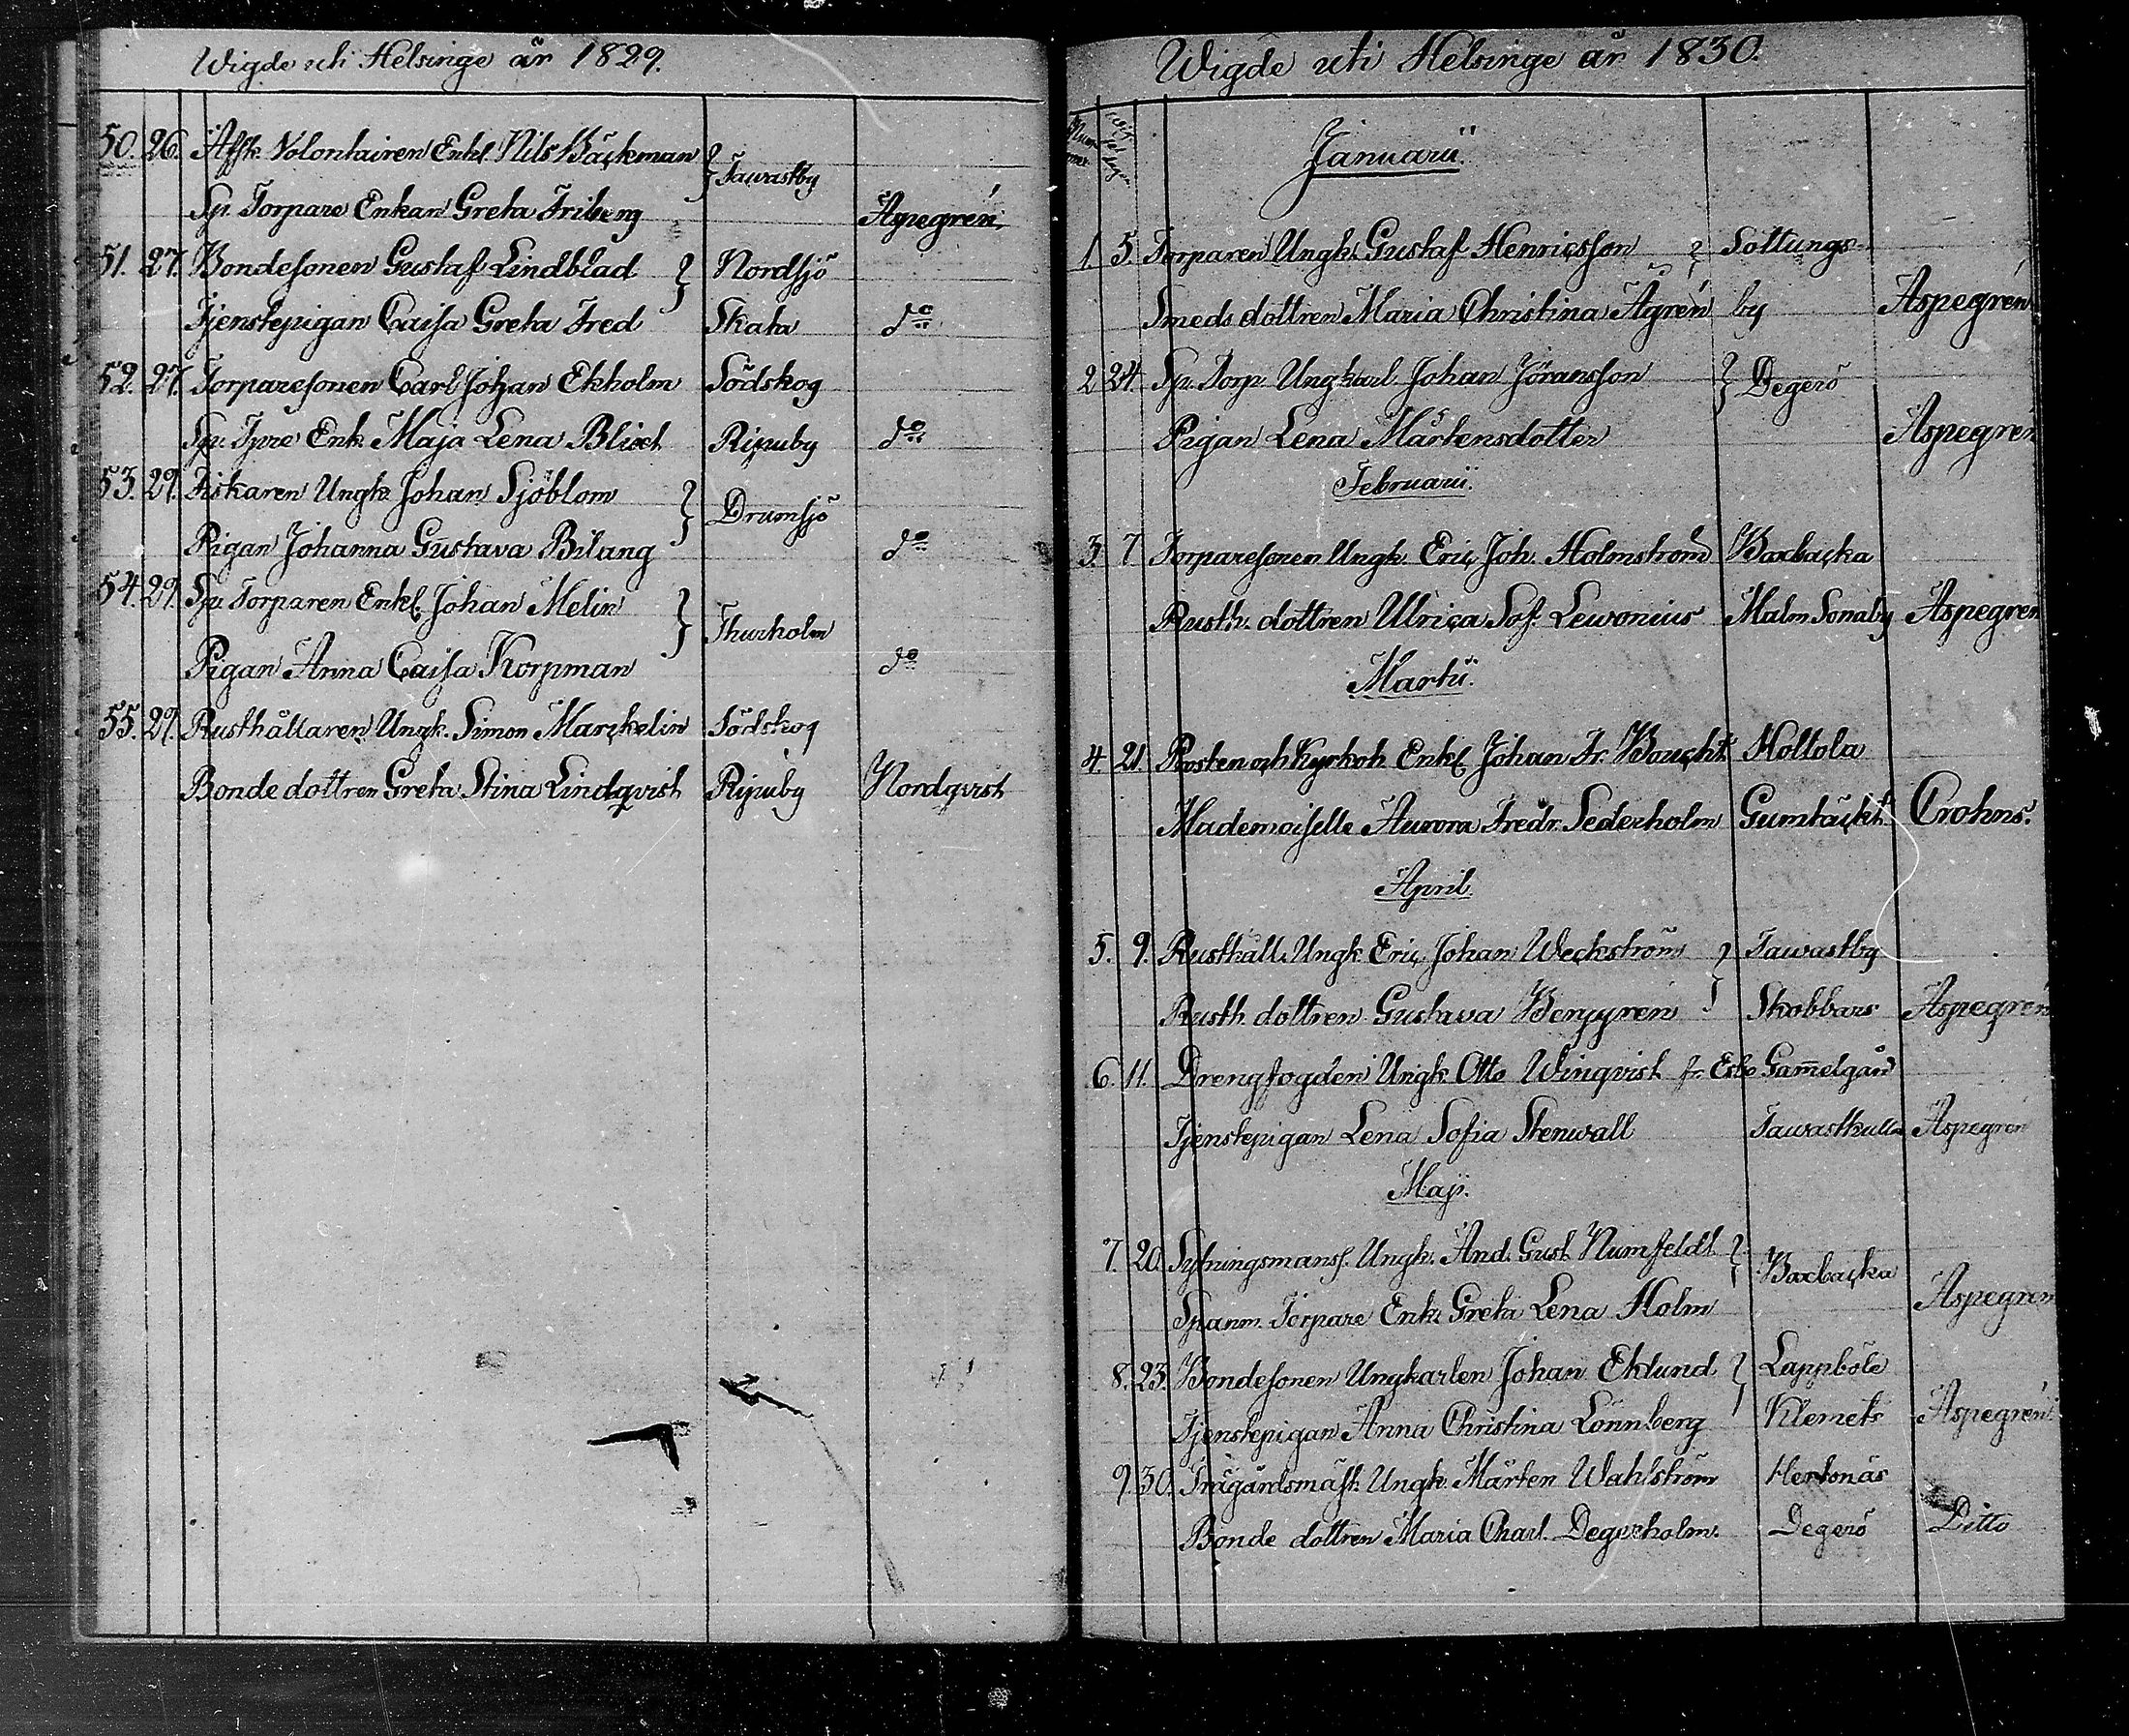 Wigde uti Helsinge år 1829.
50. 26. Afsk. Volontairen Enkl. Nils Bäckman } Tawastby
Sp. Torpare Enkan Greta Friberg Aspegrén
51. 27. Bondesonen Gustaf Lindblad } Nordsjö
Tjenstepigan Caisa Greta Fred Skata do
52. 27. Torparesonen Carl Johan Ekholm Sodskog
Sp. Tpre Enk. Maja Lena Blixt Ripuby do
53. 29. Fiskaren Ungk. Johan Sjöblom } Drumsjö
Pigan Johanna Gustava Bilang do
54. 29. Sp. Torparen Enkl. Johan Melin } Thurholm
Pigan Anna Caisa Korpman do
55. 29. Rusthållaren Ungk. Simon Marckelin Sodskog
Bonde dottren Greta Stina Lindqvist Ripuby Nordqvist
Wigde uti Helsinge år 1830.
Januarii.
1. 5. Torparen Ungk. Gustaf Henricsson } Sottungs
Smeds dottren Maria Christina Ågrén by Aspegrén
2 24. Sp. Torp. Ungkarl Johan Jöransson } Degerö
Pigan Lena Mårtensdotter Aspegrén
Februarii.
3. 7 Torparesonen Ungk. Eric Joh. Holmström Boxbacka
Rusth. dottren Ulrica Sof. Lewonius Malm Sonaby Aspegrén
Martii.
4. 21. Prosten och Kyrkoh. Enkl. Johan Fr. Bought Hollola
Mademoiselle Aurora Fredr. Sederholm Gumtäckt Crohns.
April.
5. 9. Rusthåll. Ungk. Eric Johan Weckström } Tawastby
Rusth. dottren Gustava Berggrén Skobbars Aspegrén
6. 11. Drengfogden Ungk. Otto Winqvist fr. Esbo Gammelgård
Tjenstepigan Lena Sofia Stenwall Tawastkulla Aspegrén
Maji.
7. 20. Sytningsmans. Ungk. And. Gust. Numfeldt } Boxbacka
Spanm. Torpare Enk. Greta Lena Holm Aspegrén
8. 23. Bondesonen Ungkarlen Johan Eklund } Lappböle
Tjenstepigan Anna Christina Lönnberg Klemets Aspegrén
9. 30. Trägårdsmäst. Ungk. Mårten Wahlström Hertonäs
Bonde dottren Maria Charl. Degerholm. Degerö Ditto